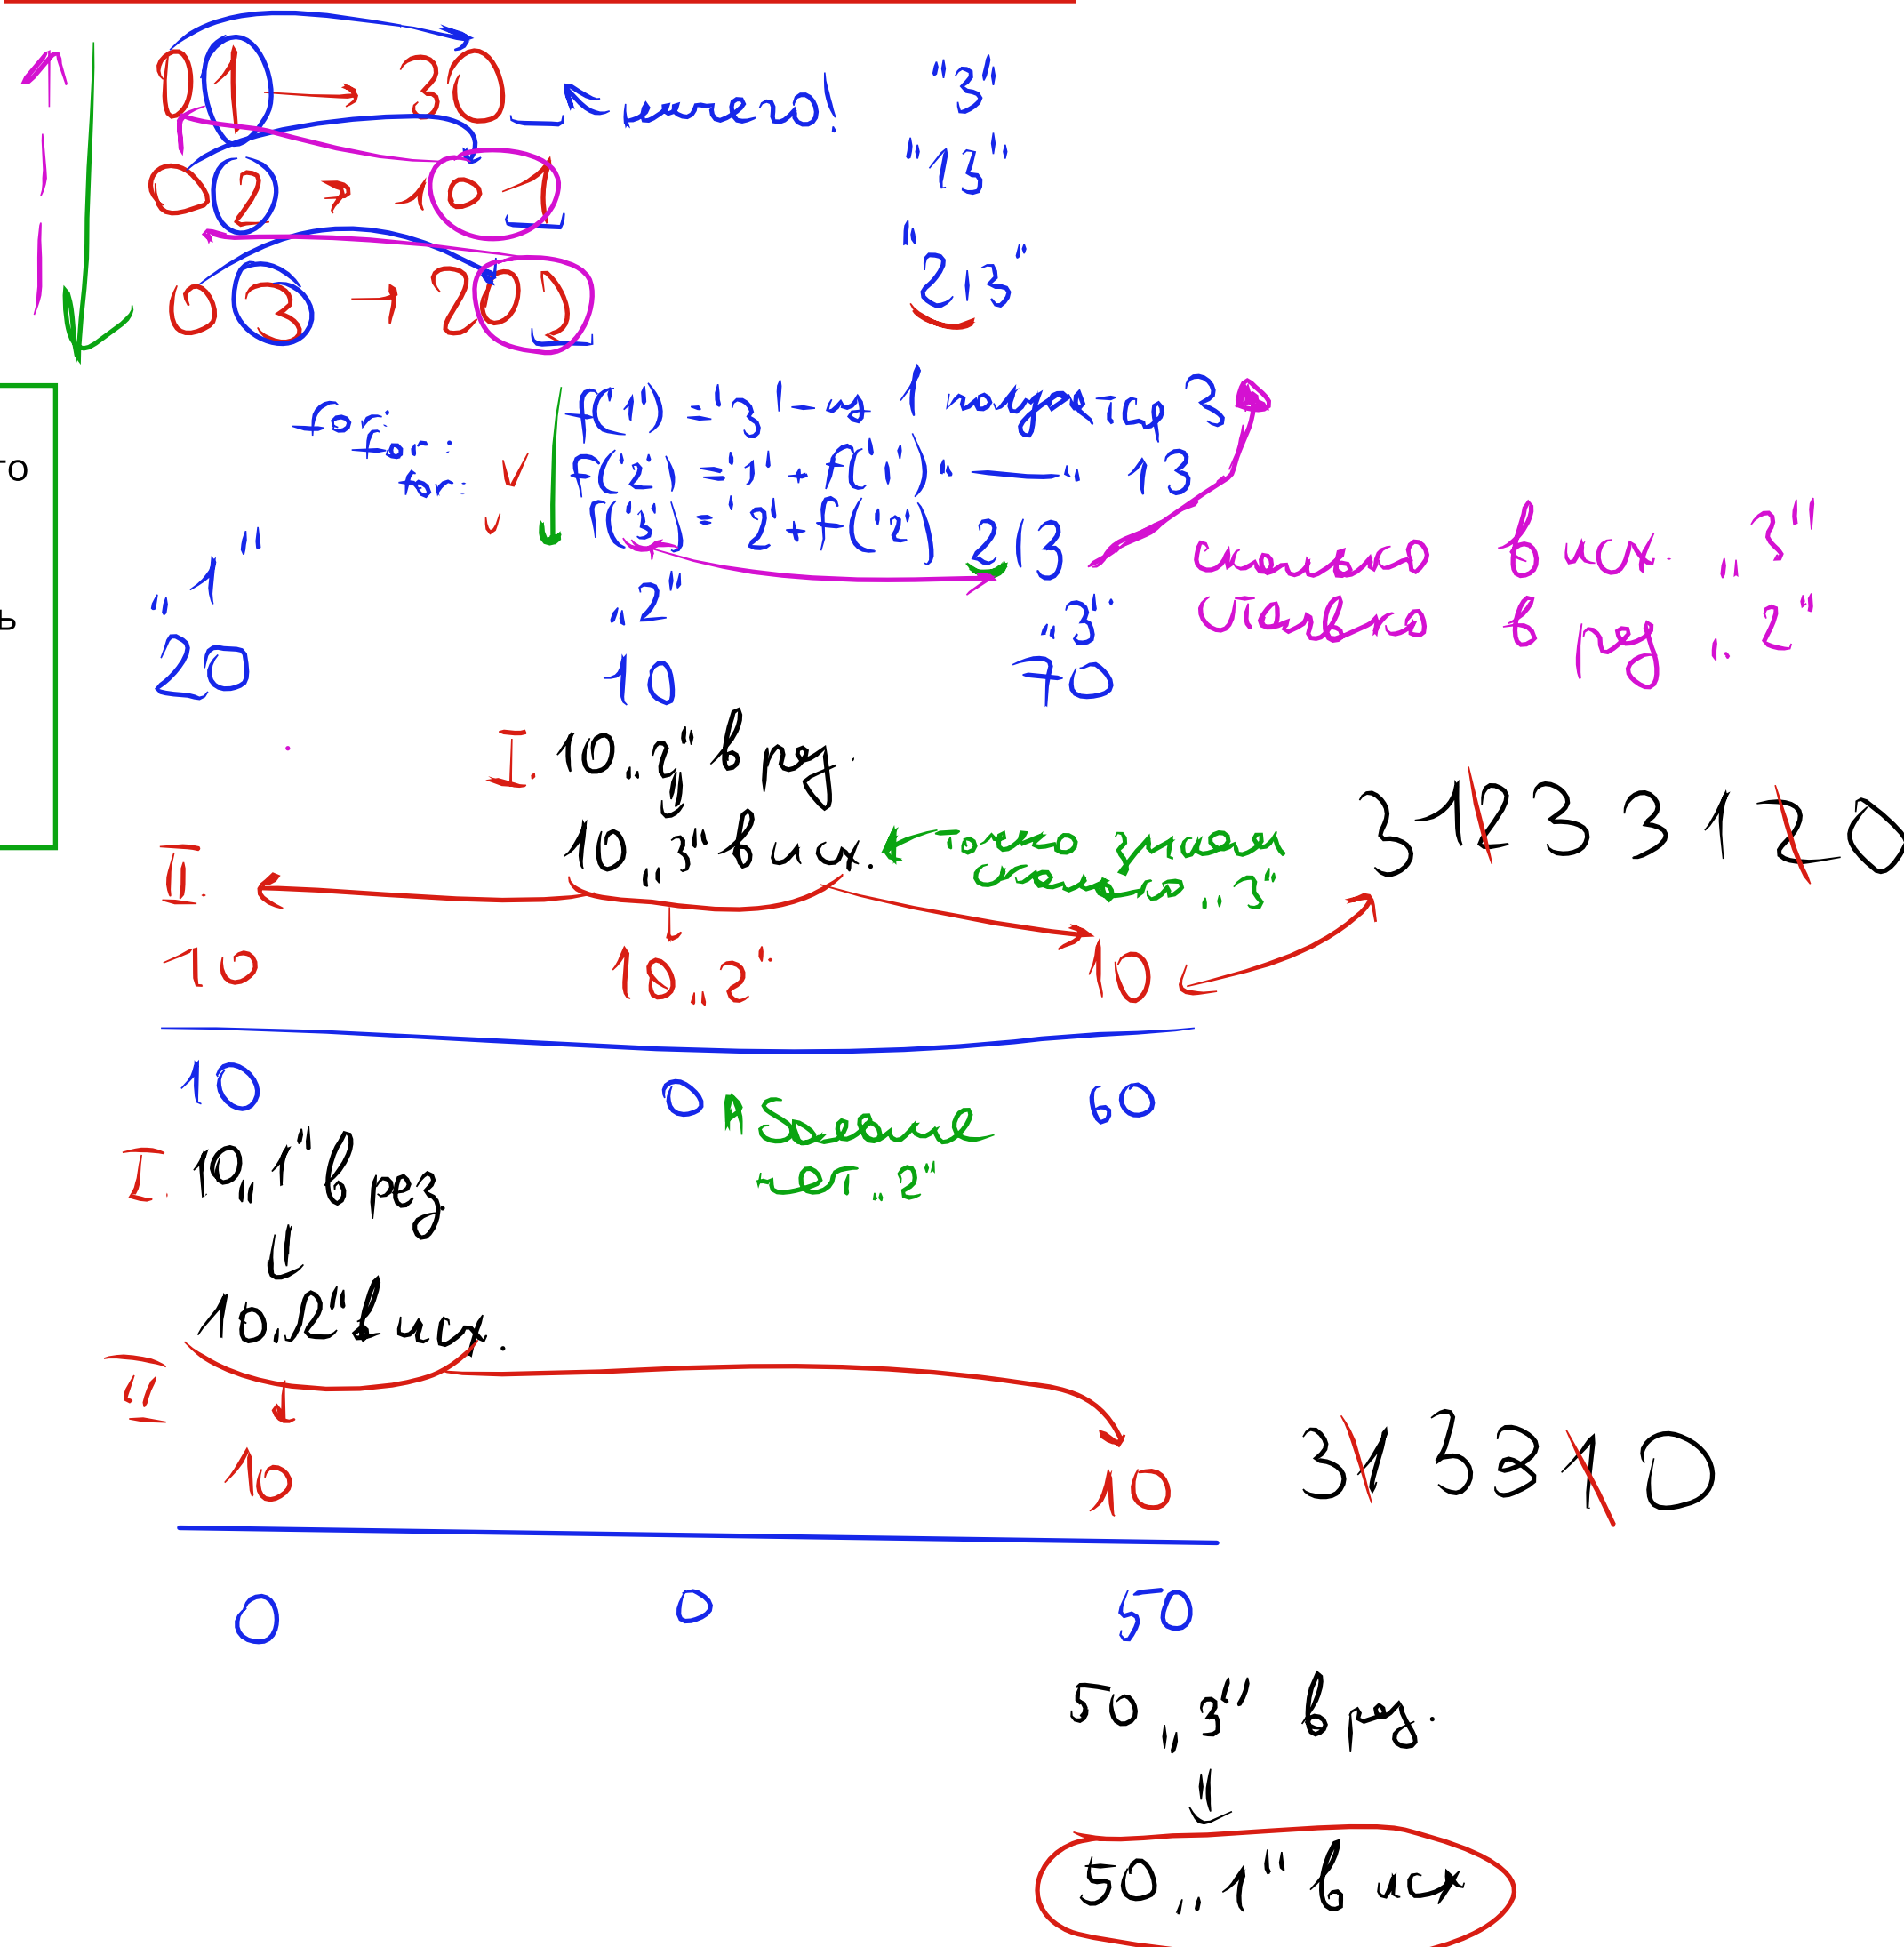 01 → 30 ничего! "3"
02 → 101 "13"
03 → 202 "213"
го
for: f("1") = "3" - из 1
for: f("2") = "1" + f("1") 13
for: f("3") = "2" + f("2") 213
сколько в исх. „3"
столько в рез „2"
ь
„1" „2" „3"
20 10 70
I. 10 „2" в рез.
10 „3" в исх. только знаем сколько „3"
3 1 2 3 3 1 2 0
II.
10 10 „2" 10
10 0 60
А больше
нет „2"
I. 10 „1" в рез.
10 „2" в исх.
II
10 10
3 1 3 3 1 0
0 0 50
50 „3" в рез.
50 „1" в исх